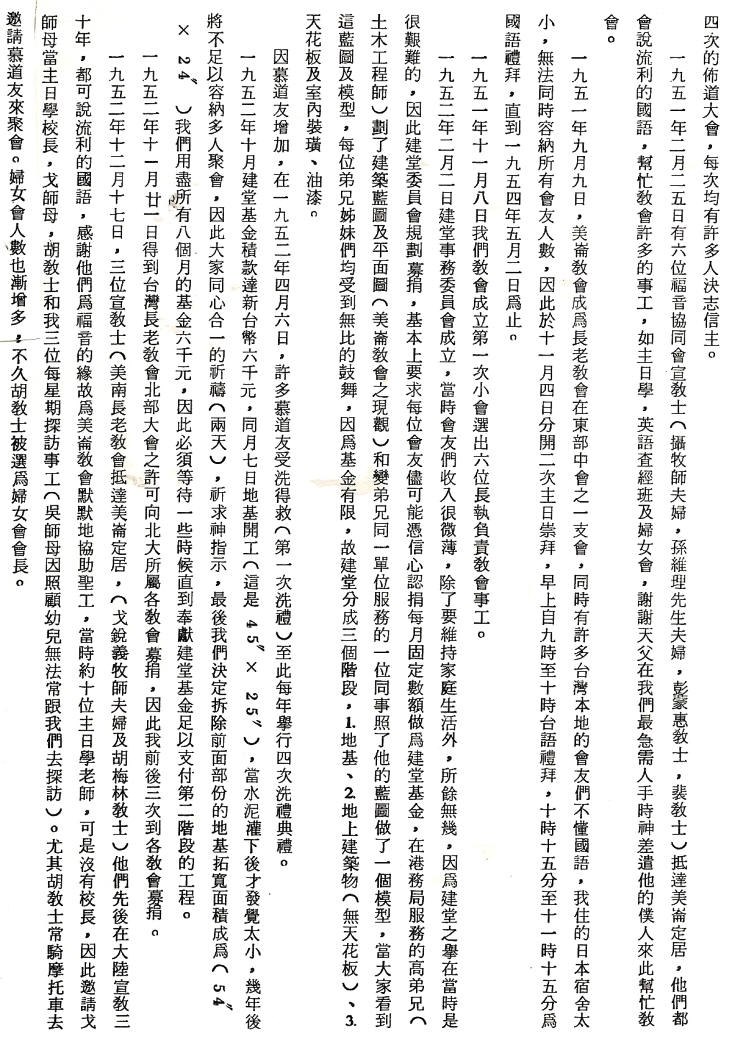 四次的佈道大會，每次均有許多人決志信主。
一九五一年二月二五日有六位福音協同會宣敎士（攝牧師夫婦，孫維理先生夫婦，彭蒙惠敎士，裴敎士）抵達美崙定居，他們都
會說流利的國語，幫忙敎會許多的事工，如主日學，英語查經班及婦女會，謝謝天父在我們最急需人手時神差遣他的僕人來此幫忙敎
會。
一九五一年九月九日，美崙敎會成爲長老敎會在東部中會之一支會，同時有許多台灣本地的會友們不懂國語，我住的日本宿舍太
小，無法同時容納所有會友人數，因此於十一月四日分開二次主日崇拜，早上自九時至十時台語禮拜，十時十五分至十一時十五分爲
國語禮拜，直到一九五四年五月二日爲止。
一九五一年十一月八日我們敎會成立第一次小會選出六位長執負責敎會事工。
一九五二年二月二日建堂事務委員會成立，當時會友們收入很微薄，除了要維持家庭生活外，所餘無幾，因爲建堂之舉在當時是
很艱難的，因此建堂委員會規劃募捐，基本上要求每位會友儘可能憑信心認捐每月固定數額做爲建堂基金，在港務局服務的高弟兄（
土木工程師）劃了建築藍圖及平面圖（美崙敎會之現觀）和變弟兄同一單位服務的一位同事照了他的藍圖做了一個模型，當大家看到
這藍圖及模型，每位弟兄姊妹們均受到無比的鼓舞，因爲基金有限，故建堂分成三個階段，1.地基、2.地上建築物（無天花板）、3.
天花板及室內裝璜、油漆。
因慕道友增加，在一九五二年四月六日，許多慕道友受洗得救（第一次洗禮）至此每年舉行四次洗禮典禮。
一九五二年十月建堂基金積款達新台幣六千元，同月七日地基開工（這是 45〞× 25〞），當水泥灌下後才發覺太小，幾年後
將不足以容納多人聚會，因此大家同心合一的祈禱（兩天），祈求神指示，最後我們決定拆除前面部份的地基拓寬面積成爲（54〞
× 24〞）我們用盡所有八個月的基金六千元，因此必須等待一些時候直到奉獻建堂基金足以支付第二階段的工程。
一九五二年十一月廿一日得到台灣長老敎會北部大會之許可向北大所屬各敎會募捐，因此我前後三次到各敎會募捐。
一九五二年十二月十七日，三位宣敎士（美南長老敎會抵達美崙定居，（戈銳義牧師夫婦及胡梅林敎士）他們先後在大陸宣敎三
十年，都可說流利的國語，感謝他們爲福音的緣故爲美崙敎會默默地協助聖工，當時約十位主日學老師，可是沒有校長，因此邀請戈
師母當主日學校長，戈師母，胡敎士和我三位每星期探訪事工（吳師母因照顧幼兒無法常跟我們去探訪）。尤其胡敎士常騎摩托車去
邀請慕道友來聚會。婦女會人數也漸增多，不久胡敎士被選爲婦女會會長。